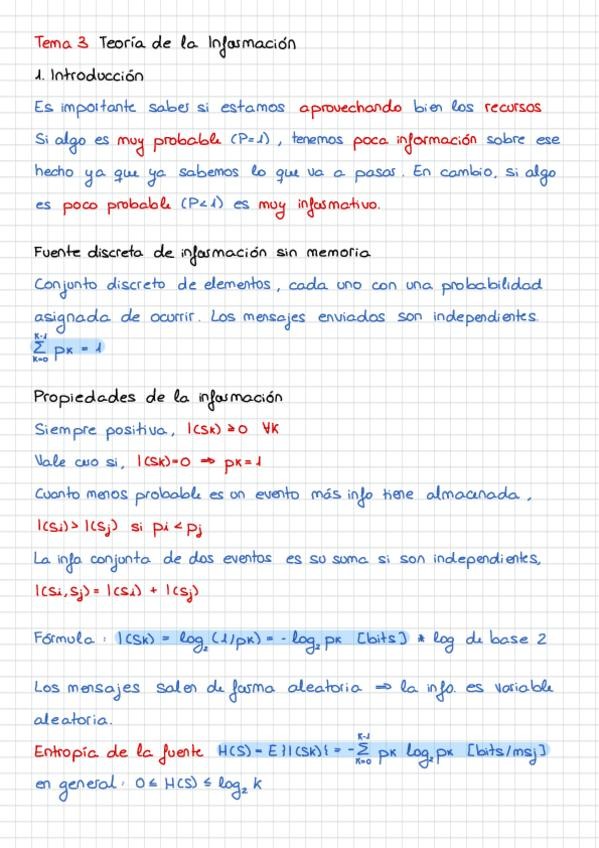 Tema 3 Teoría de la Información
1. Introducción
Es importante saber si estamos aprovechando bien los recursos
Si algo es muy probable (P=1), tenemos poca información sobre ese
hecho ya que ya sabemos lo que va a pasar. En cambio, si algo
es poco probable (P<1) es muy informativo.
Fuente discreta de información sin memoria
Conjunto discreto de elementos, cada uno con una probabilidad
asignada de ocurrir. Los mensajes enviados son independientes.
K-1
Σ pK = 1
K=0
Propiedades de la información
Siempre positiva, I(SK) ≥ 0 ∀K
Vale cero si, I(SK)=0 ⇒ pK=1
Cuanto menos probable es un evento más info tiene almacenada,
I(Si) > I(Sj) si pi < pj
La info conjunta de dos eventos es su suma si son independientes,
I(Si,Sj) = I(Si) + I(Sj)
Fórmula: I(SK) = log₂ (1/pK) = - log₂ pK [bits] * log de base 2
Los mensajes salen de forma aleatoria ⇒ la info. es variable
aleatoria.
Entropía de la fuente H(S) = E{I(SK)} = -Σ pK log₂ pK [bits/msj]
K-1
K=0
en general: 0 ≤ H(S) ≤ log₂ K